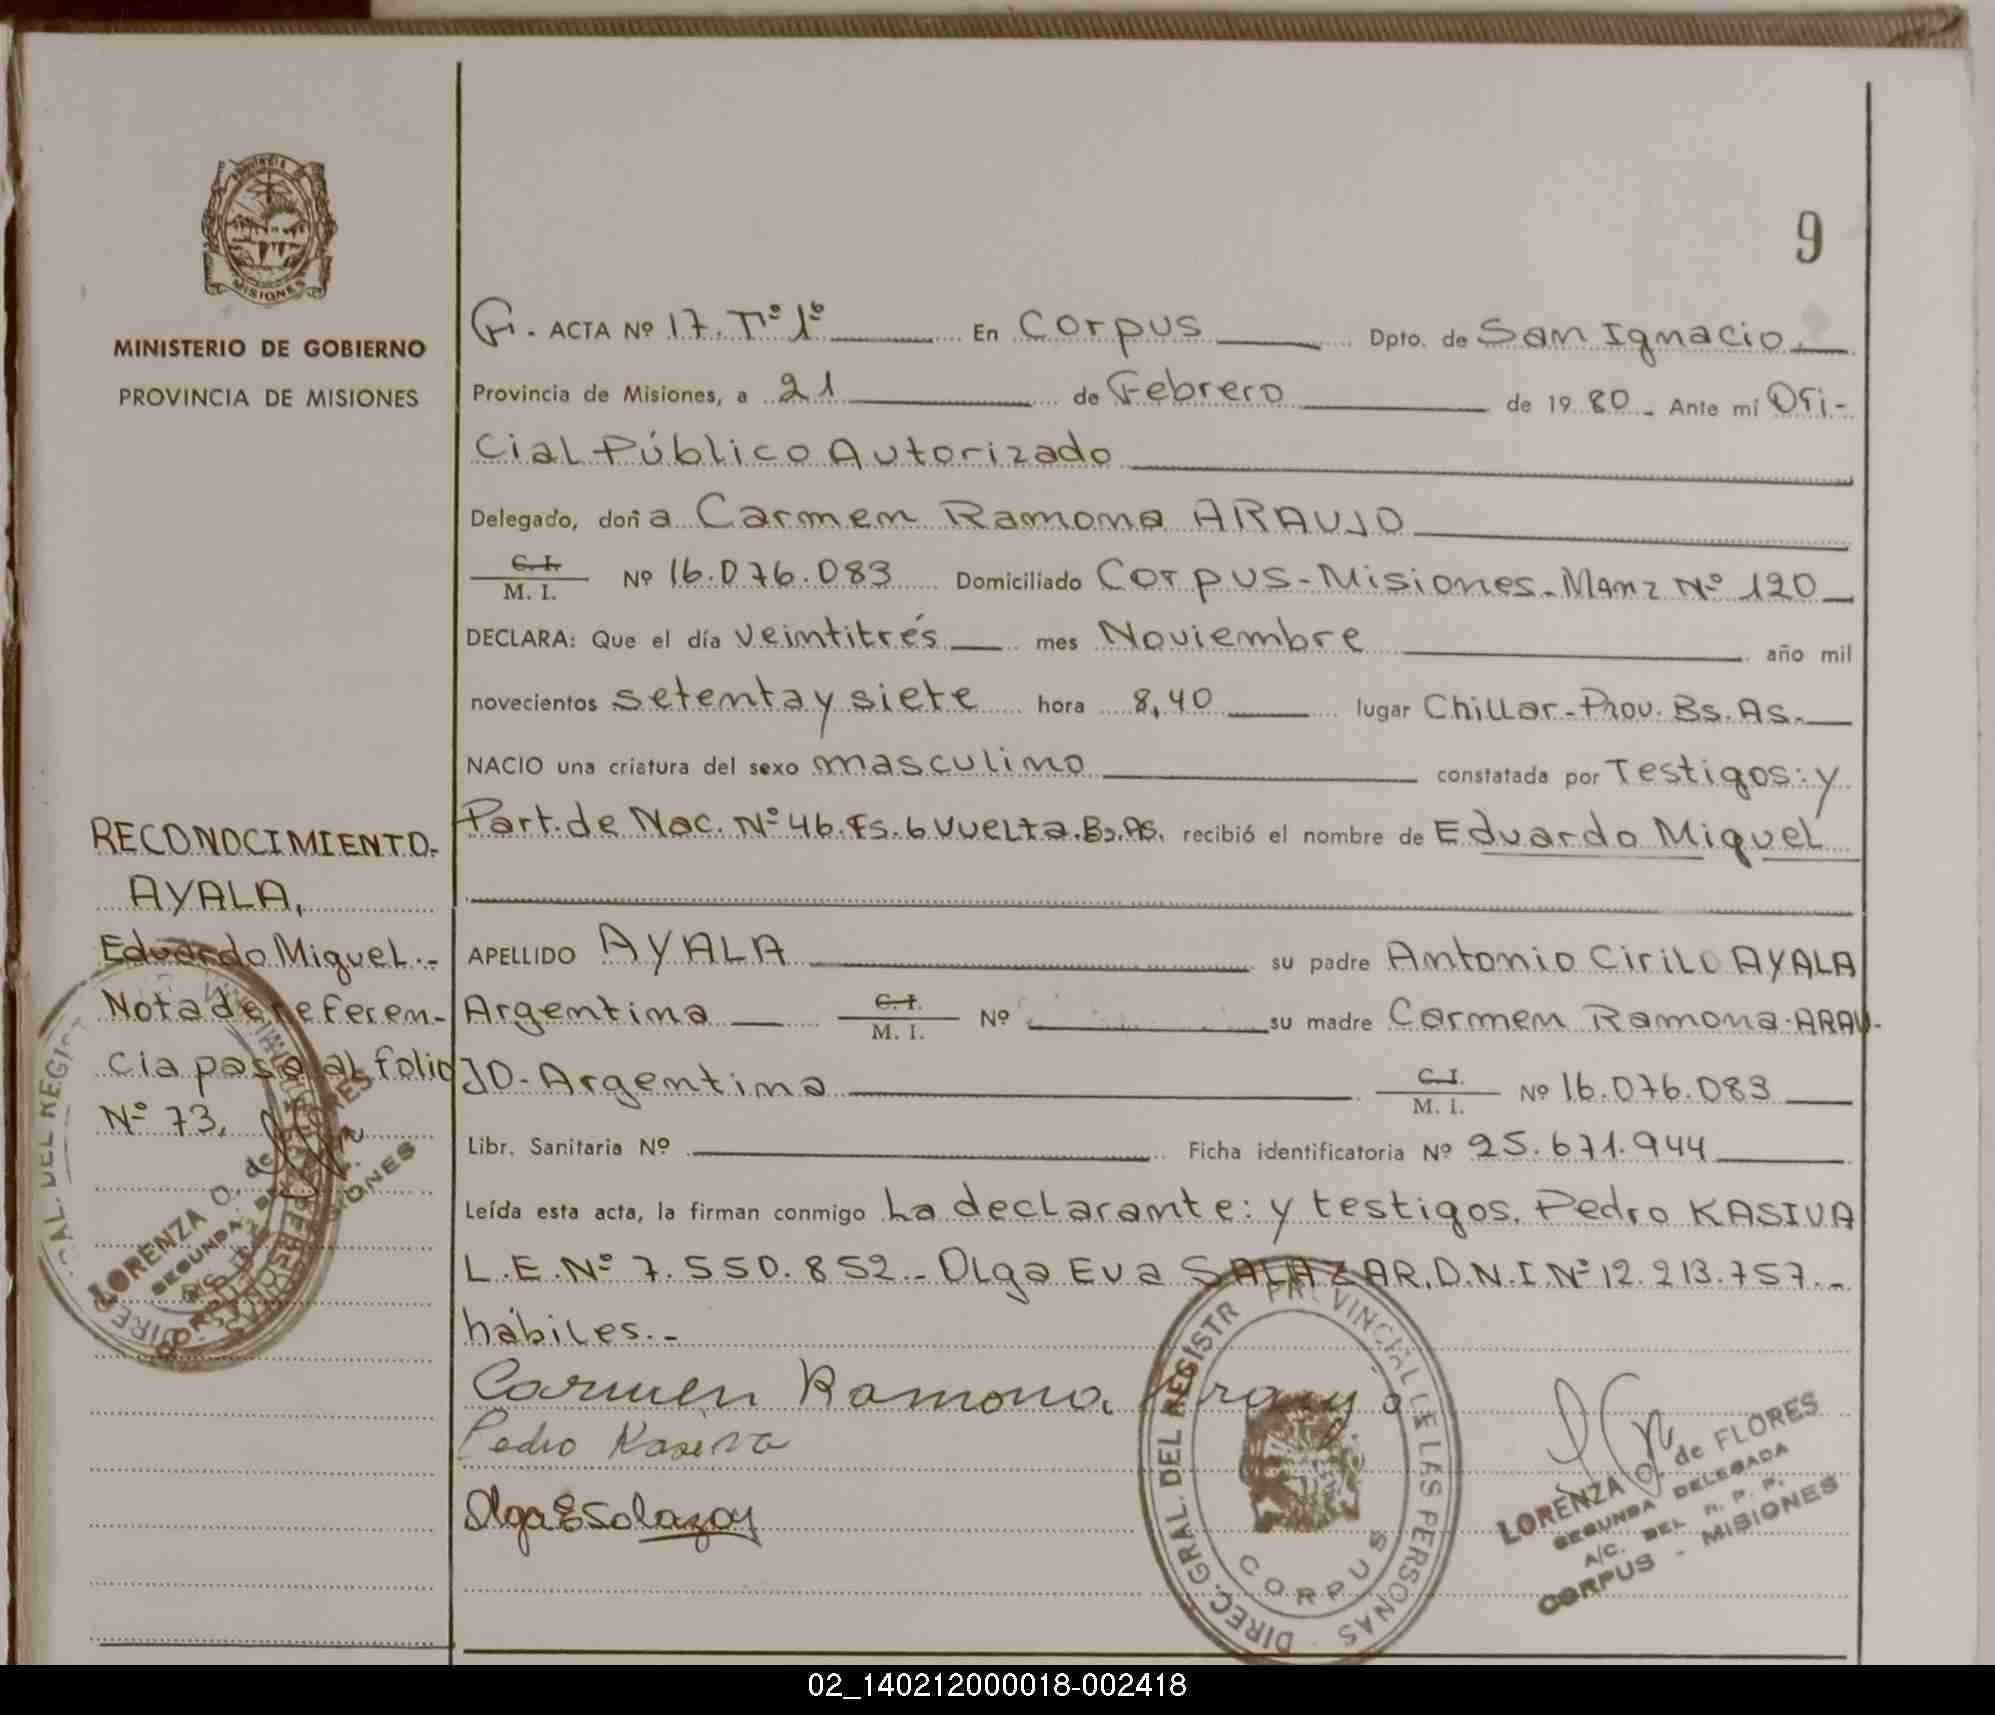 Provincia
MISIONES
MINISTERIO DE GOBIERNO
PROVINCIA DE MISIONES
RECONOCIMIENTO.-
AYALA,
Eduardo Miguel.-
Nota de referen-
cia pasa al folio
Nº 73,
LORENZA O. de FLORES
SEGUNDA DELEGADA
CORPUS - MISIONES
9
ACTA Nº 17. Tº 1º En Corpus Dpto. de San Ignacio.
Provincia de Misiones, a 21 de Febrero de 1980 - Ante mí Ofi-
cial Público Autorizado
Delegado, doña Carmen Ramona ARAUJO
C. I.
M. I. Nº 16.076.083 Domiciliado Corpus-Misiones-Manz Nº 120
DECLARA: Que el día veintitrés mes Noviembre año mil
novecientos setenta y siete hora 8,40 lugar Chillar-Prov. Bs. As.
NACIO una criatura del sexo masculino constatada por Testigos: y
Part. de Nac. Nº 46. Fs. 6 Vuelta. Bs. As. recibió el nombre de Eduardo Miguel
APELLIDO AYALA su padre Antonio Cirilo AYALA
Argentina C. I. M. I. Nº su madre Carmen Ramona ARAU-
JO-Argentina C. I. M. I. Nº 16.076.083
Libr. Sanitaria Nº Ficha identificatoria Nº 25.671.944
Leída esta acta, la firman conmigo La declarante: y testigos. Pedro KASIVA
L.E. Nº 7.550.852 - Olga Eva SALAZAR. D.N.I. Nº 12.213.757.-
hábiles.-
Carmen Ramona Araujo
Pedro Kasiva
Olga E Salazar
DIREC. GRAL. DEL REGISTR PROVINCIAL DE LAS PERSONAS
CORPUS
LORENZA O. de FLORES
SEGUNDA DELEGADA
A/C. DEL R. P. P.
CORPUS - MISIONES
02_140212000018-002418